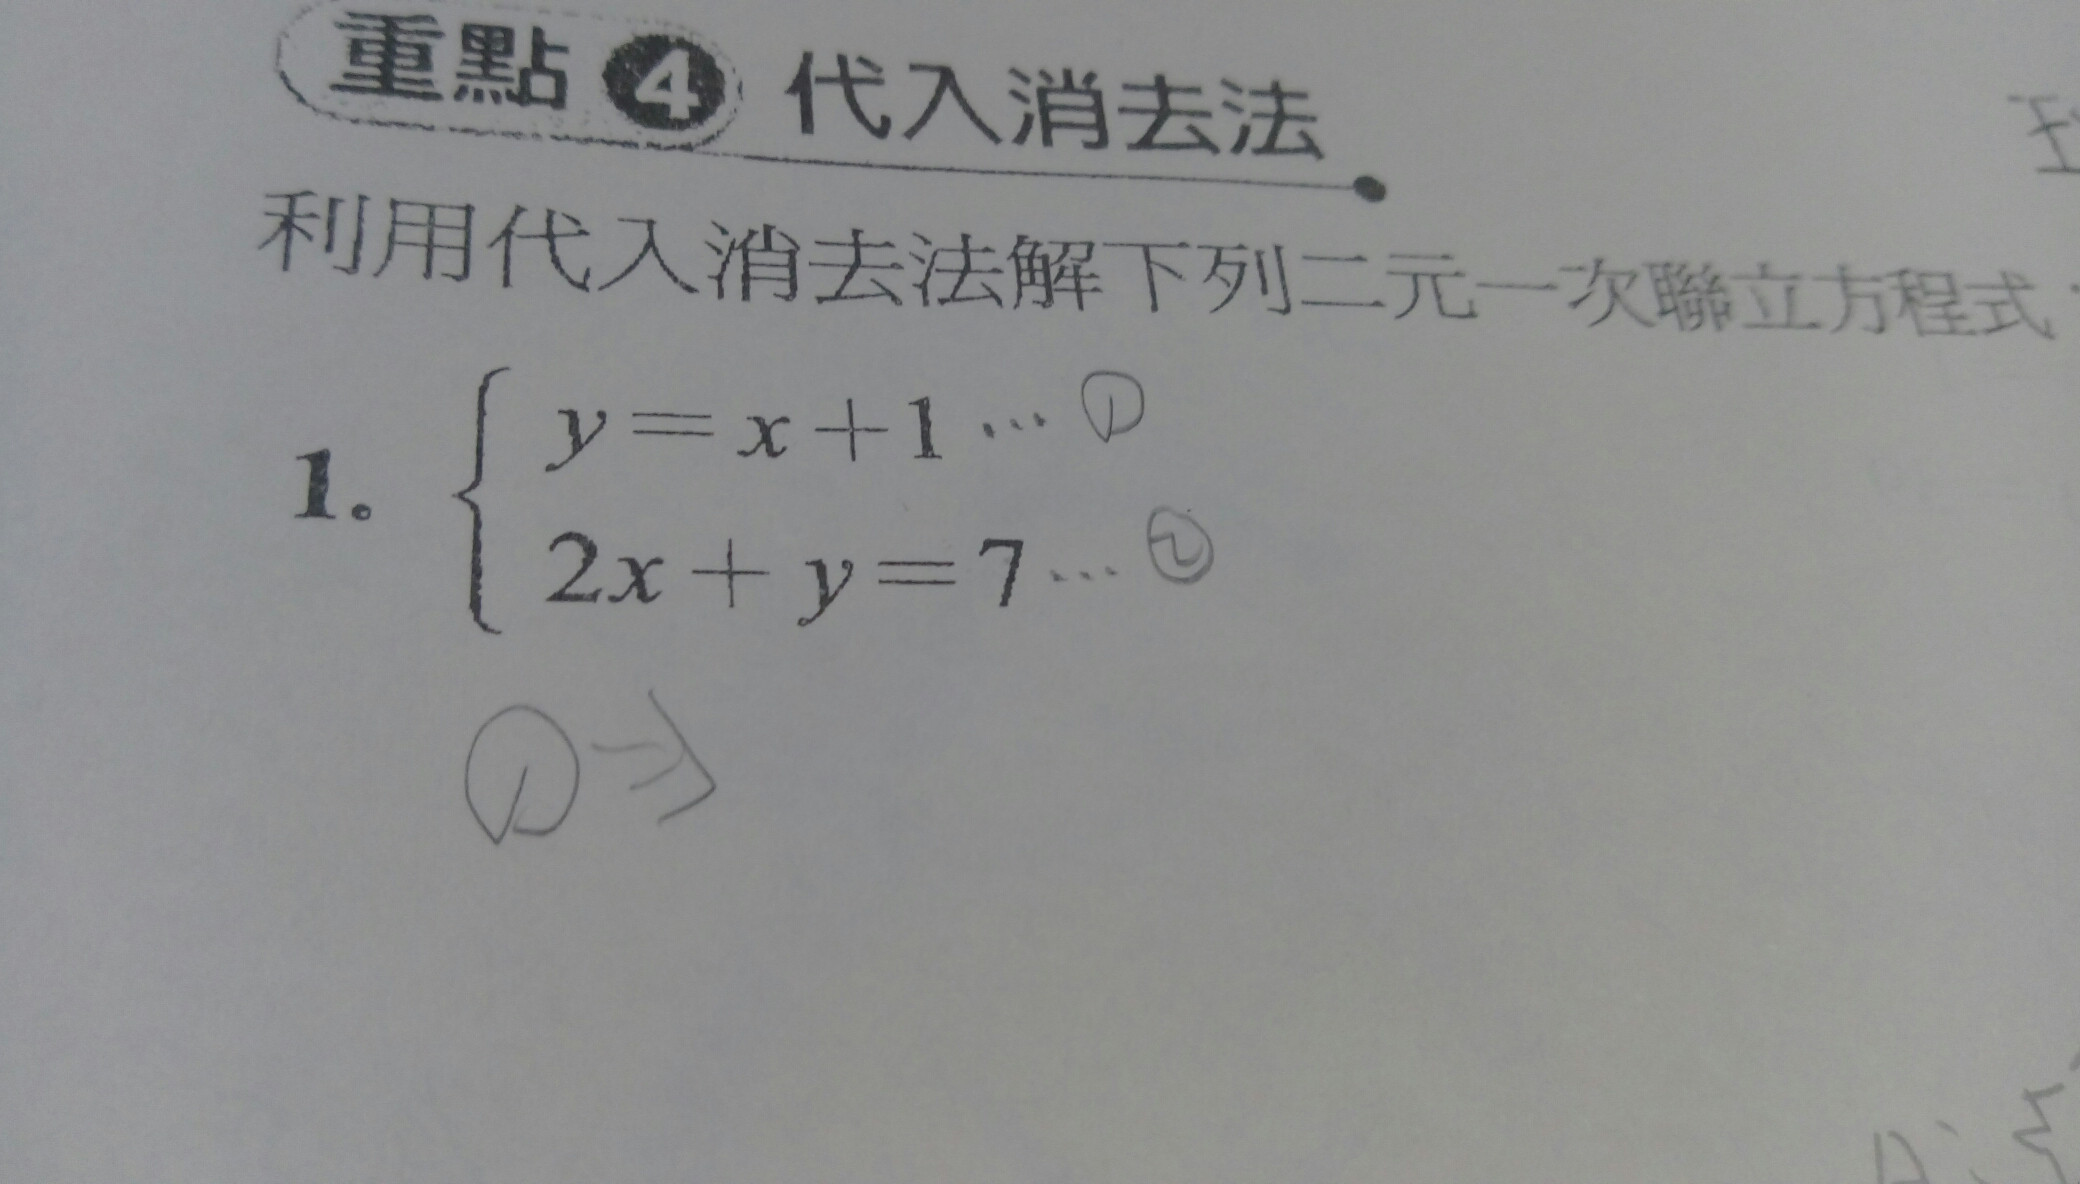 重點 4 代入消去法
利用代入消去法解下列二元一次聯立方程式
1. { y＝x＋1 … ①
2x＋y＝7 … ②
①⇒
A：{